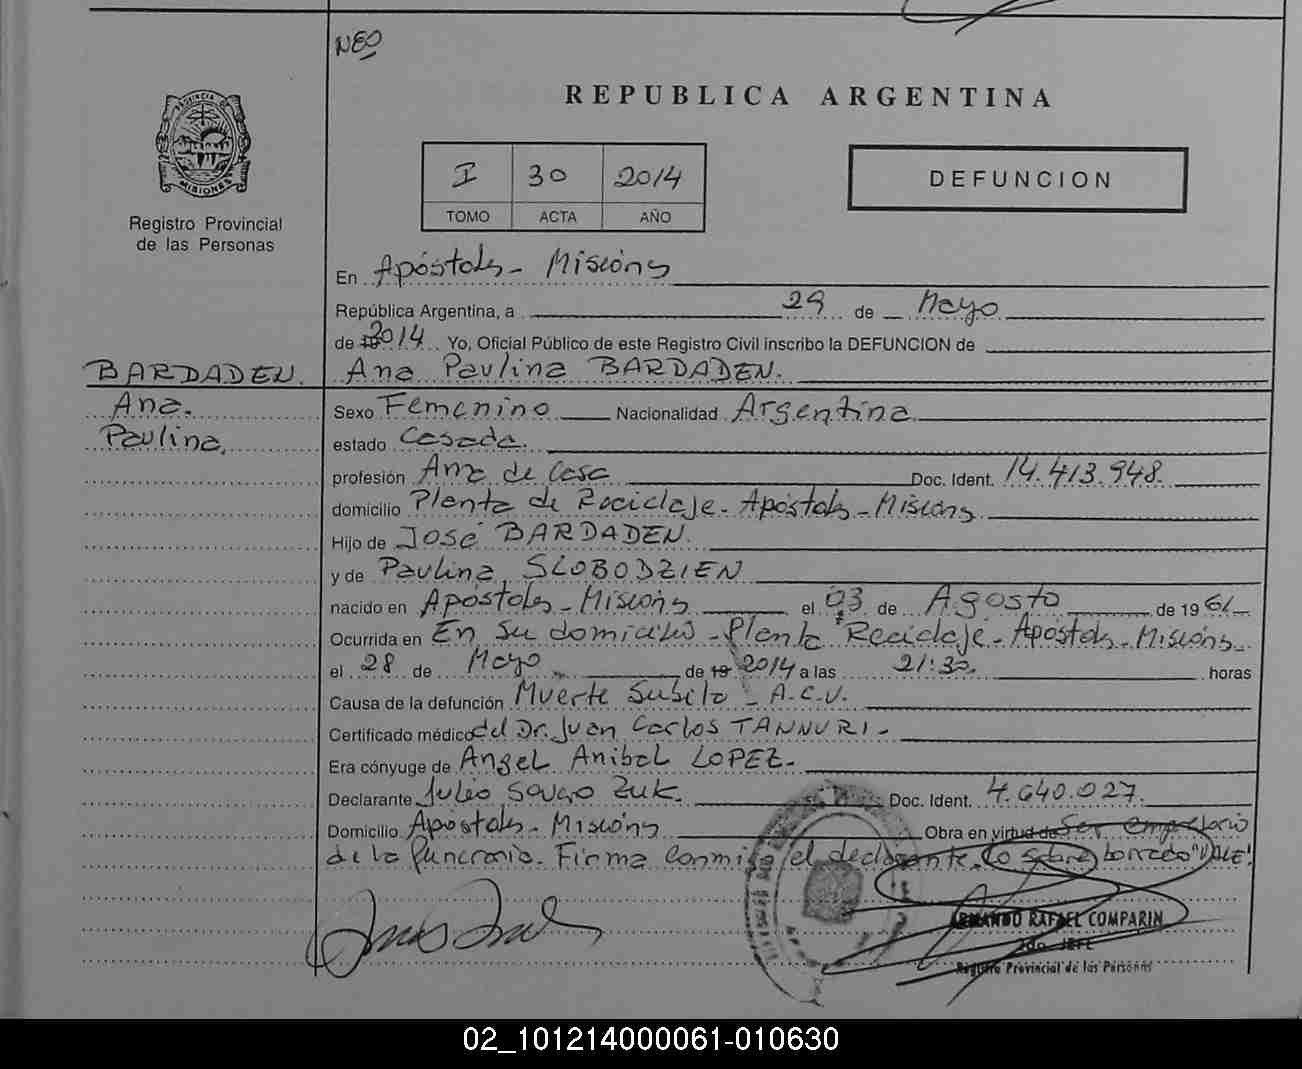 NEO
REPUBLICA ARGENTINA
PROVINCIA DE
MISIONES
Registro Provincial
de las Personas
I 30 2014
TOMO ACTA AÑO
DEFUNCION
En Apóstoles - Misiones
República Argentina, a 29 de Mayo
de 2014 Yo, Oficial Público de este Registro Civil inscribo la DEFUNCION de
BARDADEN. Ana Paulina BARDADEN.
Ana. Sexo Femenino Nacionalidad Argentina
Paulina. estado Casada.
profesión Ama de Casa Doc. Ident. 14.413.948.
domicilio Planta de Reciclaje - Apóstoles - Misiones
Hijo de José BARDADEN.
y de Paulina SLOBODZIEN
nacido en Apóstoles - Misiones el 03 de Agosto de 1961
Ocurrida en En su domicilio - Planta Reciclaje - Apóstoles - Misiones
el 28 de Mayo de 19 2014 a las 21:30. horas
Causa de la defunción Muerte Subita - A.C.V.
Certificado médico del Dr. Juan Carlos TANNURI -
Era cónyuge de Angel Anibal LOPEZ -
Declarante Julio Zuk. Doc. Ident. 4.640.027.
Domicilio Apostoles - Misiones Obra en virtud de Ser empresario
de la funeraria. Firma conmigo el declarante. Lo sobre borrado "VALE".
ARMANDO RAFAEL COMPARIN
2do. JEFE
Registro Provincial de las Personas
02_101214000061-010630